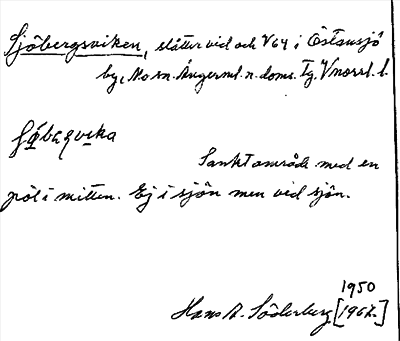 Sjöbergsviken, slåtter vid och V 64 i Östansjö
by, Mo sn. Ångerml. n. doms. Tg. Vnorrl. l.
Sankt område med en
pöl i mitten. Ej i sjön men vid sjön.
1950
Hans A. Söderberg [1967.]